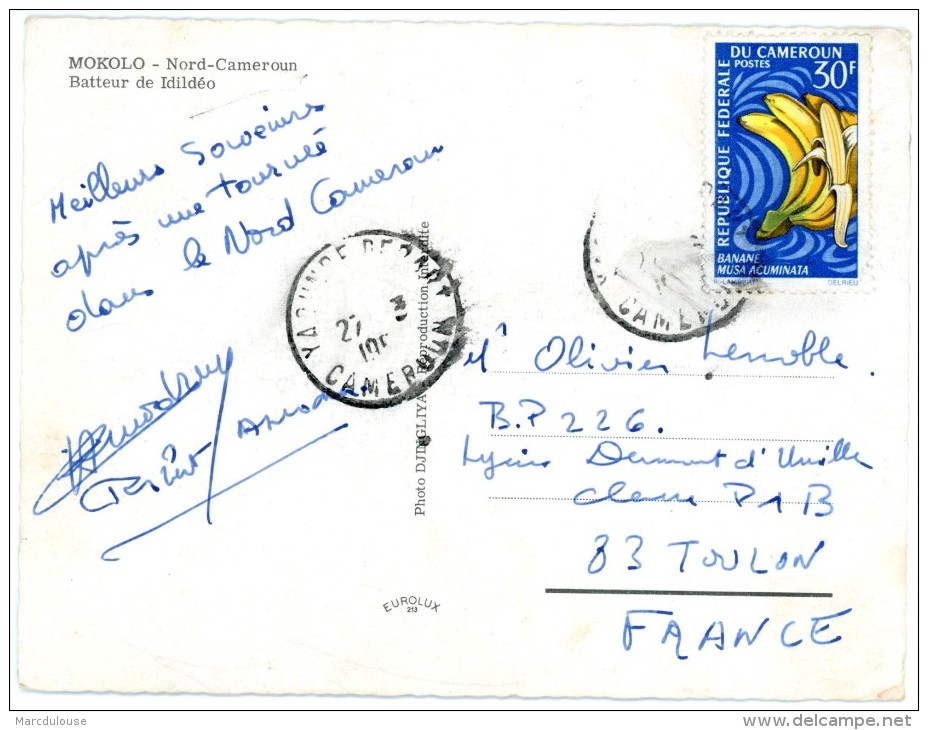 MOKOLO – Nord-Cameroun
Batteur de Idildéo
Meilleurs Souvenirs
après une tournée
dans le Nord Cameroun
REPUBLIQUE FEDERALE
DU CAMEROUN
POSTES
30F
BANANE
MUSA ACUMINATA
DELRIEU
YAOUNDE
27 3
CAMEROUN
CAMEROUN
Photo
Reproduction interdite
Mr Olivier Lenoble.
B.P 226.
Lycée Dumont d'Urville
classe P1B
83 TOULON
FRANCE
EUROLUX
213
Marcdulouse
delcampe.net